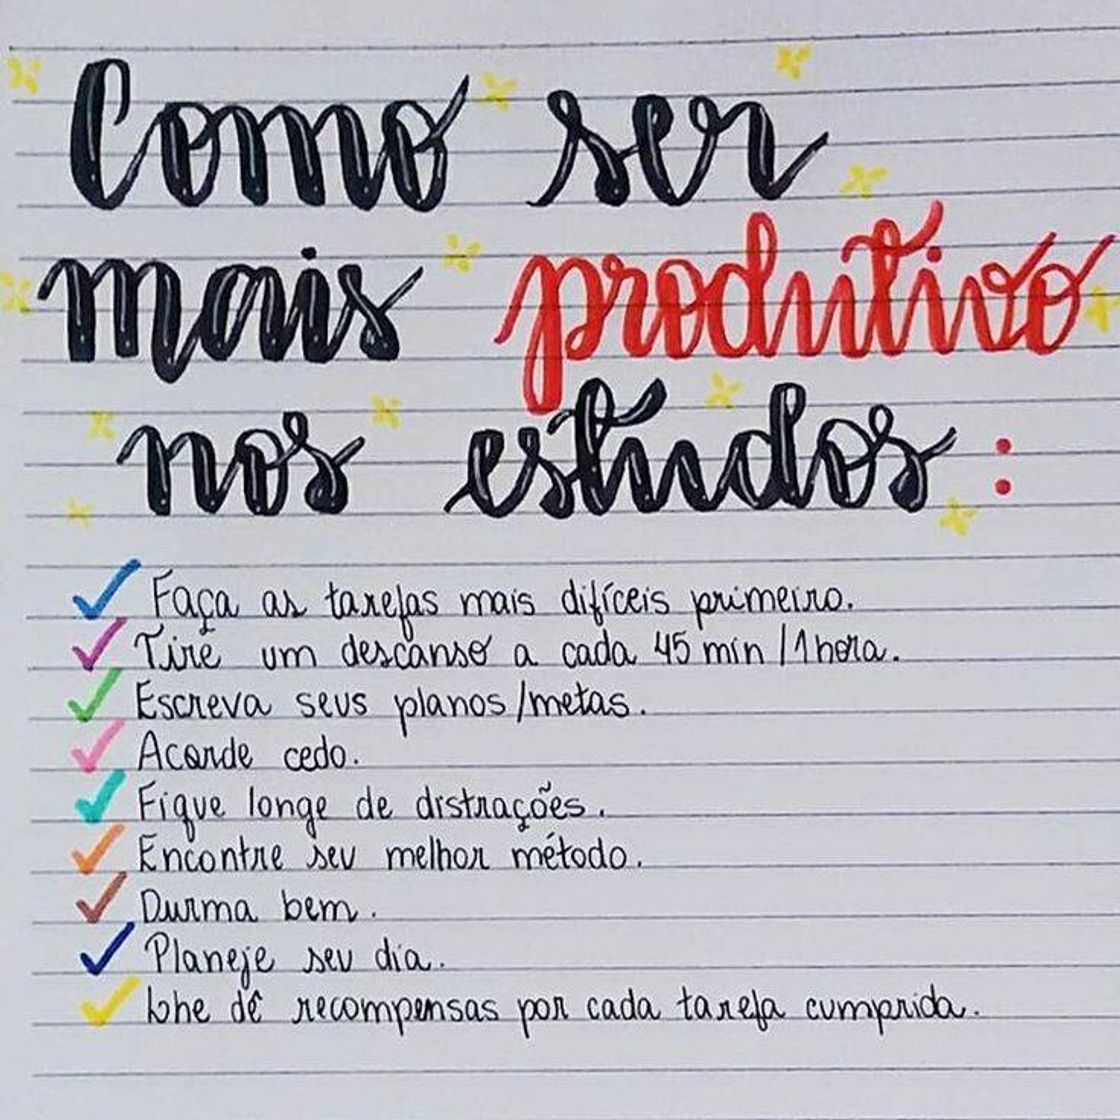 Como ser
mais produtivo
nos estudos:
Faça as tarefas mais difíceis primeiro.
Tire um descanso a cada 45 min/1 hora.
Escreva seus planos/metas.
Acorde cedo.
Fique longe de distrações.
Encontre seu melhor método.
Durma bem.
Planeje seu dia.
Lhe dê recompensas por cada tarefa cumprida.